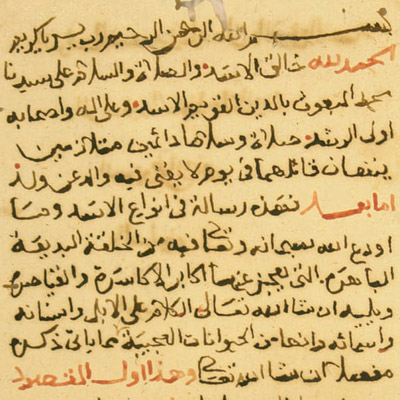 بسم الله الرحمن الرحيم رب يسر يا كريم
الحمد لله خالق الاسد والصلاة والسلام على سيدنا
محمد المبعوث بالدين القويم الاسد وعلى اله واصحابه
اولى الرشد صلاة وسلاما دائمين متلازمين
ينفعان قائلهما في يوم لا يغنى فيه والد عن ولد
اما بعد فهذه رسالة في انواع الاسد وما
اودع الله سبحانه وتعالى فيه من الخلقة البديعة
الباهرة التى يعجز عنها اكابر الاكاسرة والقياصرة
ويليه ان شا الله تعالى الكلام على الابل واسنانه
واسمائه وانها من الحيوانات العجيبة مما ياتى ذكره
مفصلا ان شا الله تعالى وهذا اول المقصود